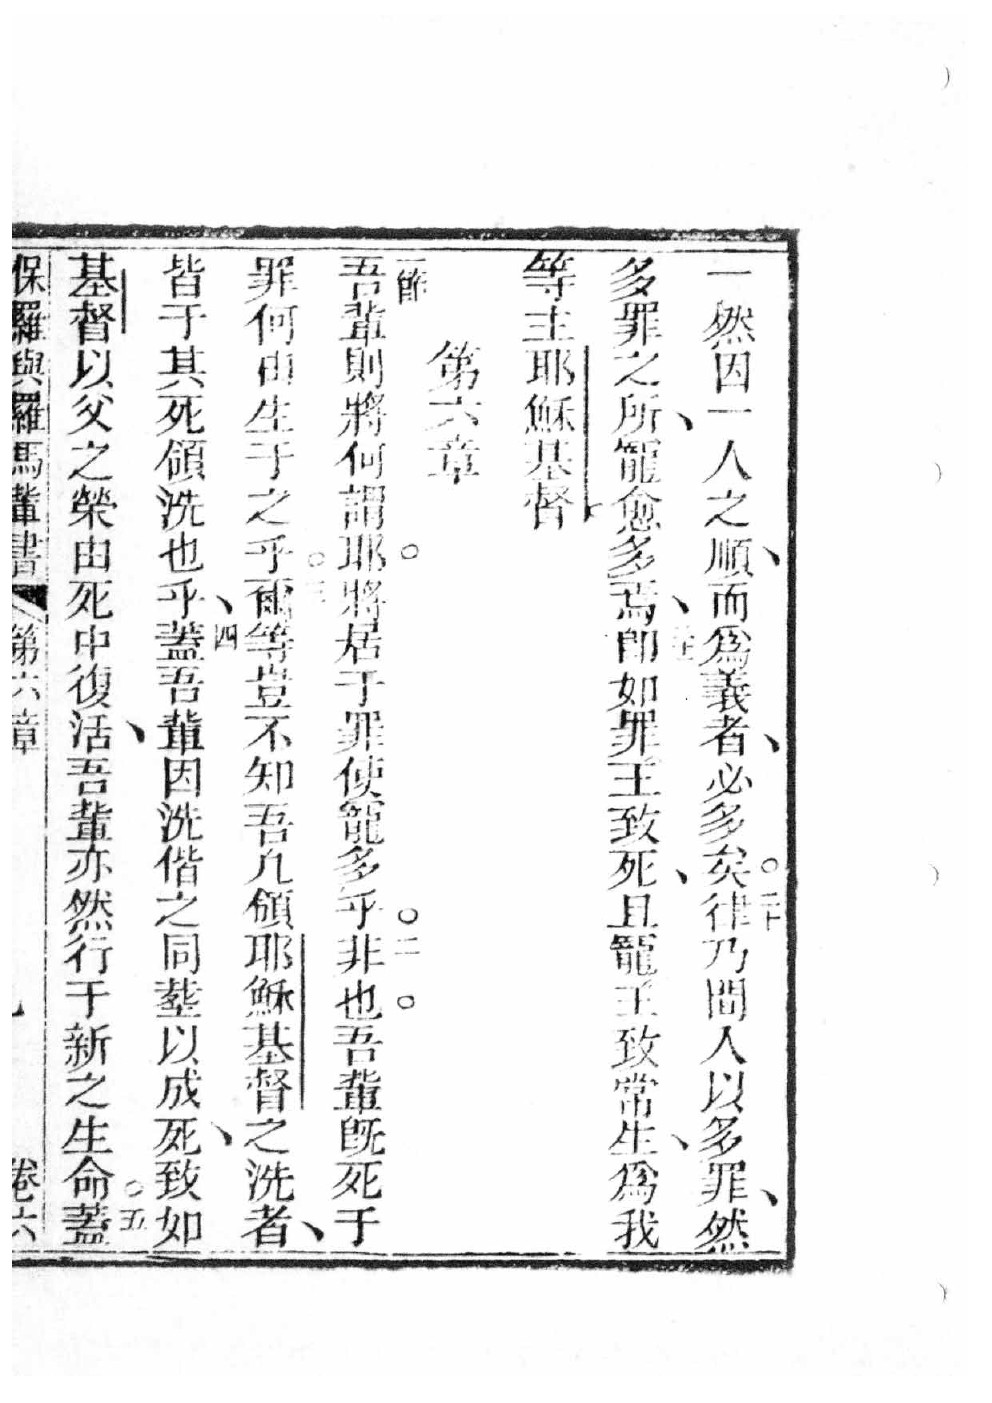 一然因一人之順、而為義者、必多矣○二十律乃間人以多罪、然
多罪之所、寵愈多焉、即如罪王致死、且寵王致常生、為我
等主耶穌基督
第六章
一節吾輩則將何謂耶○將居于罪使寵多乎○二非也○吾輩既死于
罪何由生于之乎○三爾等豈不知吾凡領耶穌基督之洗者、
皆于其死領洗也乎、四蓋吾輩因洗偕之同塟以成死、致如
基督以父之榮由死中復活、吾輩亦然行于新之生命○五蓋
保羅與羅馬輩書 第六章 卷六